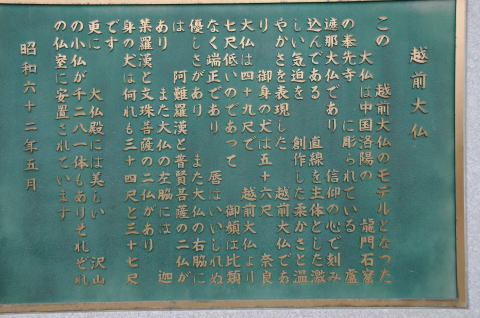 越前大仏
この　越前大仏のモデルとなった
大仏は中国洛陽の　龍門石窟
の奉先寺　に彫られている　盧
遮那大仏であり　信仰の心で刻み
込んである　直線を主体とした激
しい気迫を　創作した柔かさと温
やかさを表現した　越前大仏であ
り　御身の丈は五十六尺　奈良
大仏は四十九尺で　越前大仏より
七尺低いのであって　御顔は比類
なく端正であり　唇はいいしれぬ
優しさがあり　また大仏の右脇に
は　阿難羅漢と普賢菩薩の二仏が
あり　また大仏の左脇には　迦
葉羅漢と文珠菩薩の二仏があり
身の丈は何れも三十四尺と三十七尺
です
更に　大仏殿には美しい　沢山
の小仏が千二八一体もありそれぞれ
の仏窒に安置されています
昭和六十二年五月